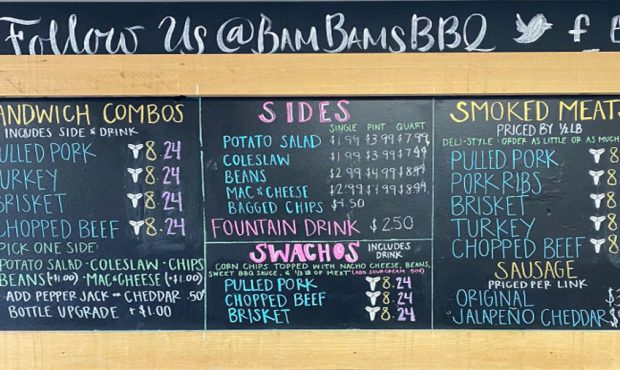 Follow Us @BamBamsBBQ
SANDWICH COMBOS
INCLUDES SIDE & DRINK
PULLED PORK 8.24
TURKEY 8.24
BRISKET 8.24
CHOPPED BEEF 8.24
PICK ONE SIDE:
POTATO SALAD · COLESLAW · CHIPS
BEANS (+$1.00) · MAC & CHEESE (+$1.00)
ADD PEPPER JACK CHEDDAR .50¢
BOTTLE UPGRADE + $1.00
SIDES
SINGLE PINT QUART
POTATO SALAD $1.99 $3.99 $7.99
COLESLAW $1.99 $3.99 $7.99
BEANS $2.99 $4.99 $8.99
MAC & CHEESE $2.99 $4.99 $8.99
BAGGED CHIPS $1.50
FOUNTAIN DRINK $2.50
SWACHOS INCLUDES DRINK
CORN CHIPS TOPPED WITH NACHO CHEESE, BEANS,
SWEET BBQ SAUCE, & 1/3 LB OF MEAT (ADD SOUR CREAM .50¢)
PULLED PORK 8.24
CHOPPED BEEF 8.24
BRISKET 8.24
SMOKED MEATS
PRICED BY ½ LB
DELI-STYLE · ORDER AS LITTLE OR AS MUCH
PULLED PORK 8
PORK RIBS 8
BRISKET 8
TURKEY 8
CHOPPED BEEF 8
SAUSAGE
PRICED PER LINK
ORIGINAL $3
JALAPEÑO CHEDDAR $